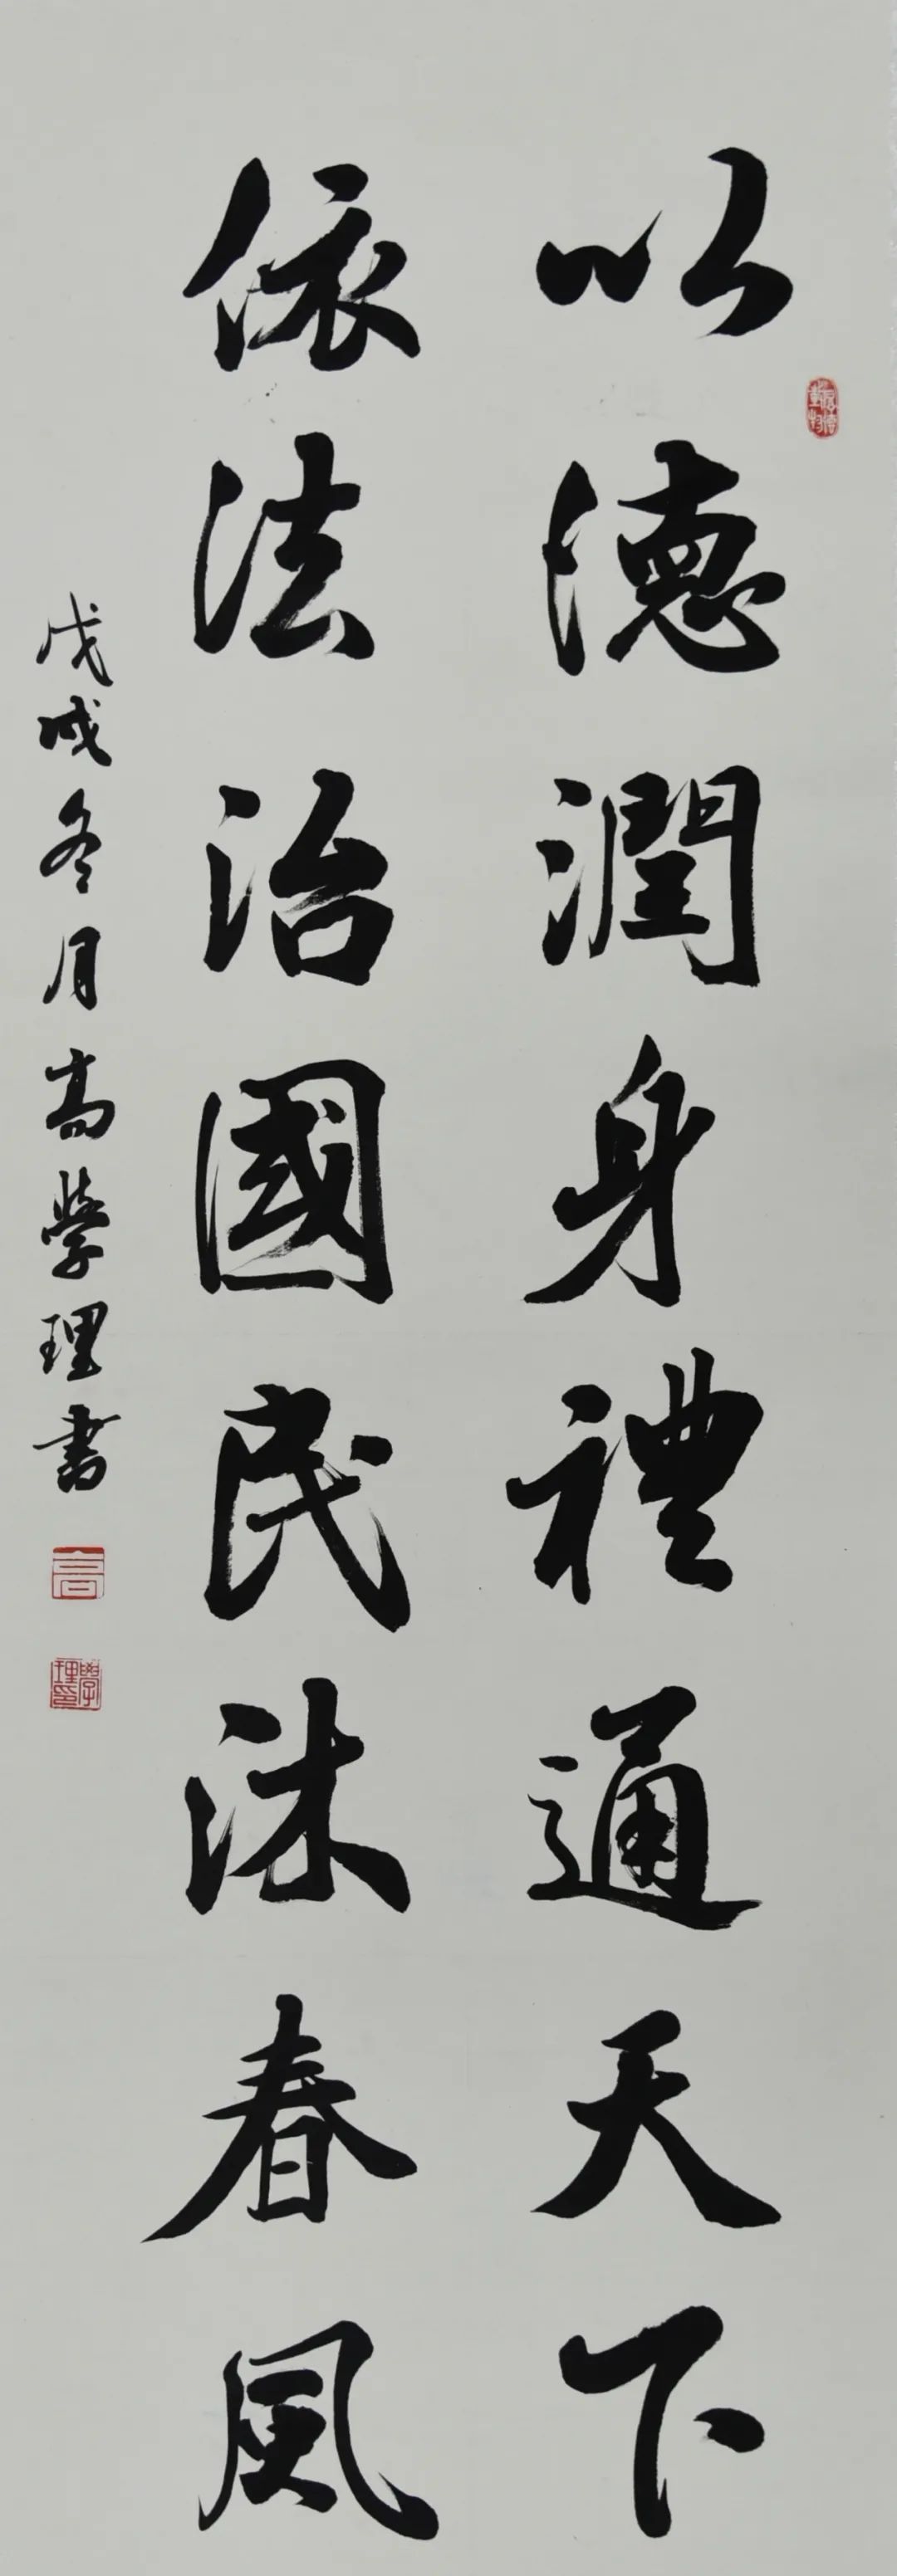 以德潤身禮通天下
依法治國民沐春風
戊戌冬月高學理書
高
學理印